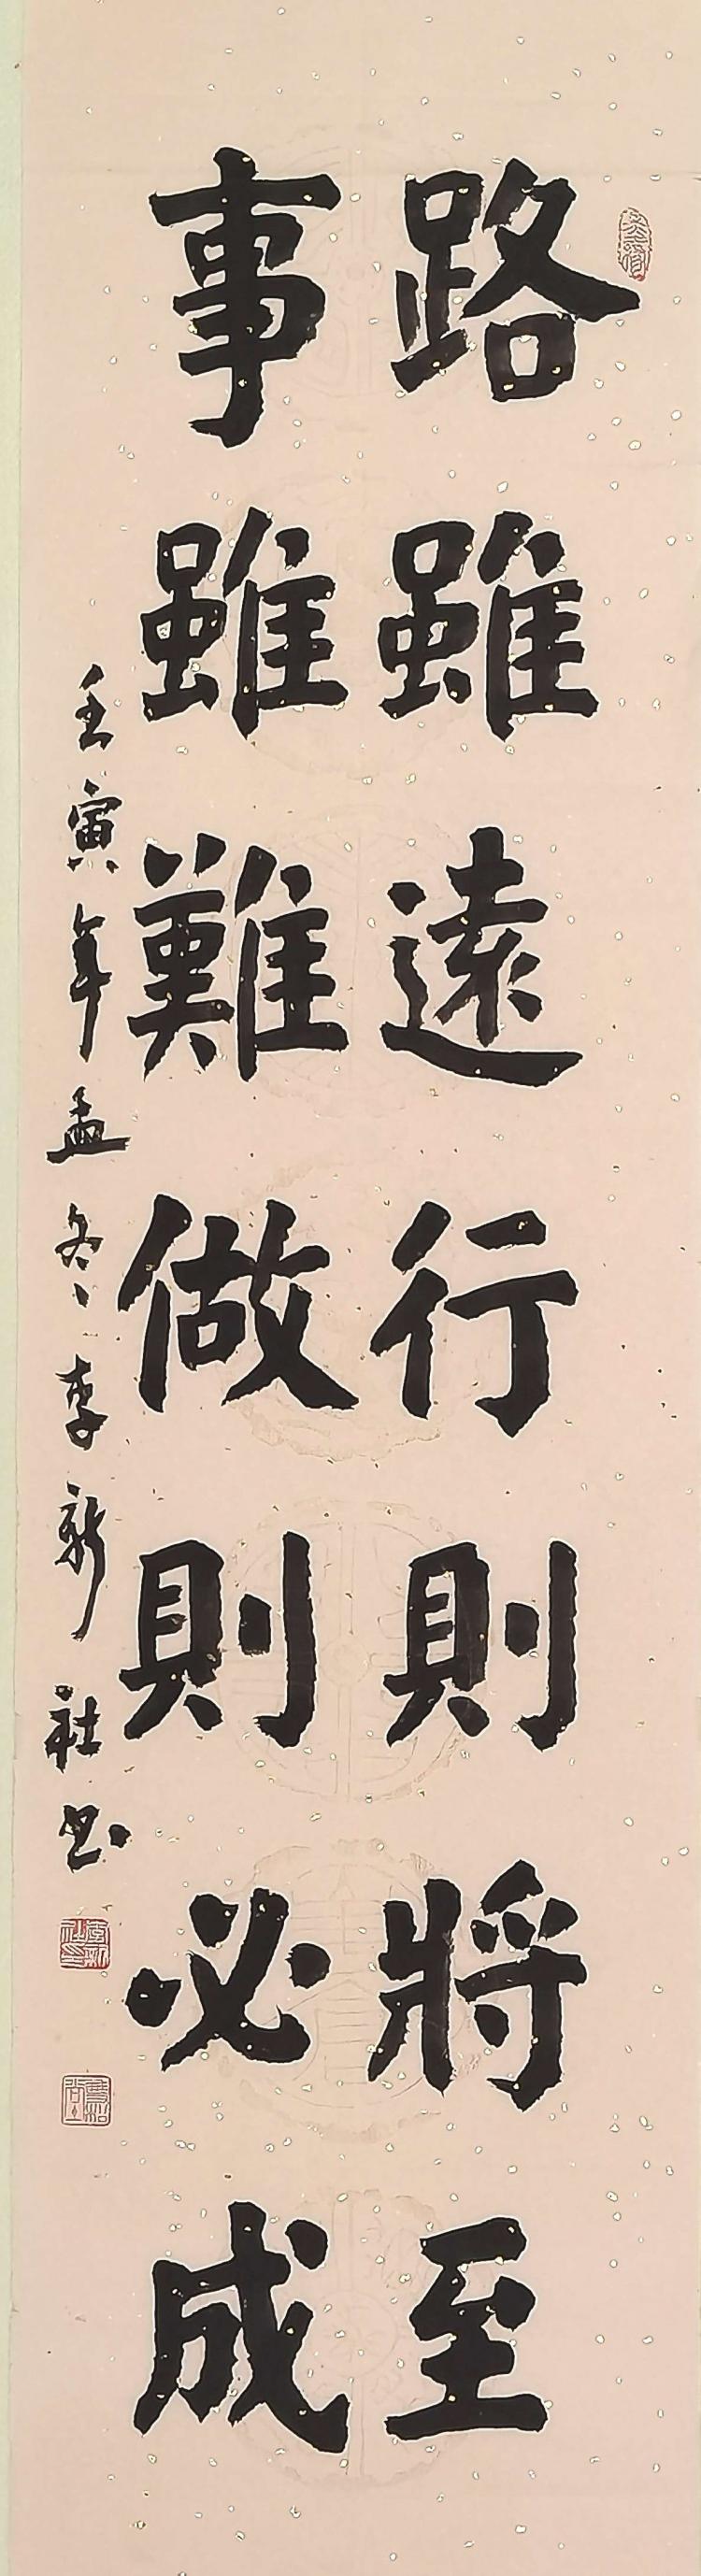 路雖遠行則將至
事雖難做則必成
壬寅年孟冬李新社书